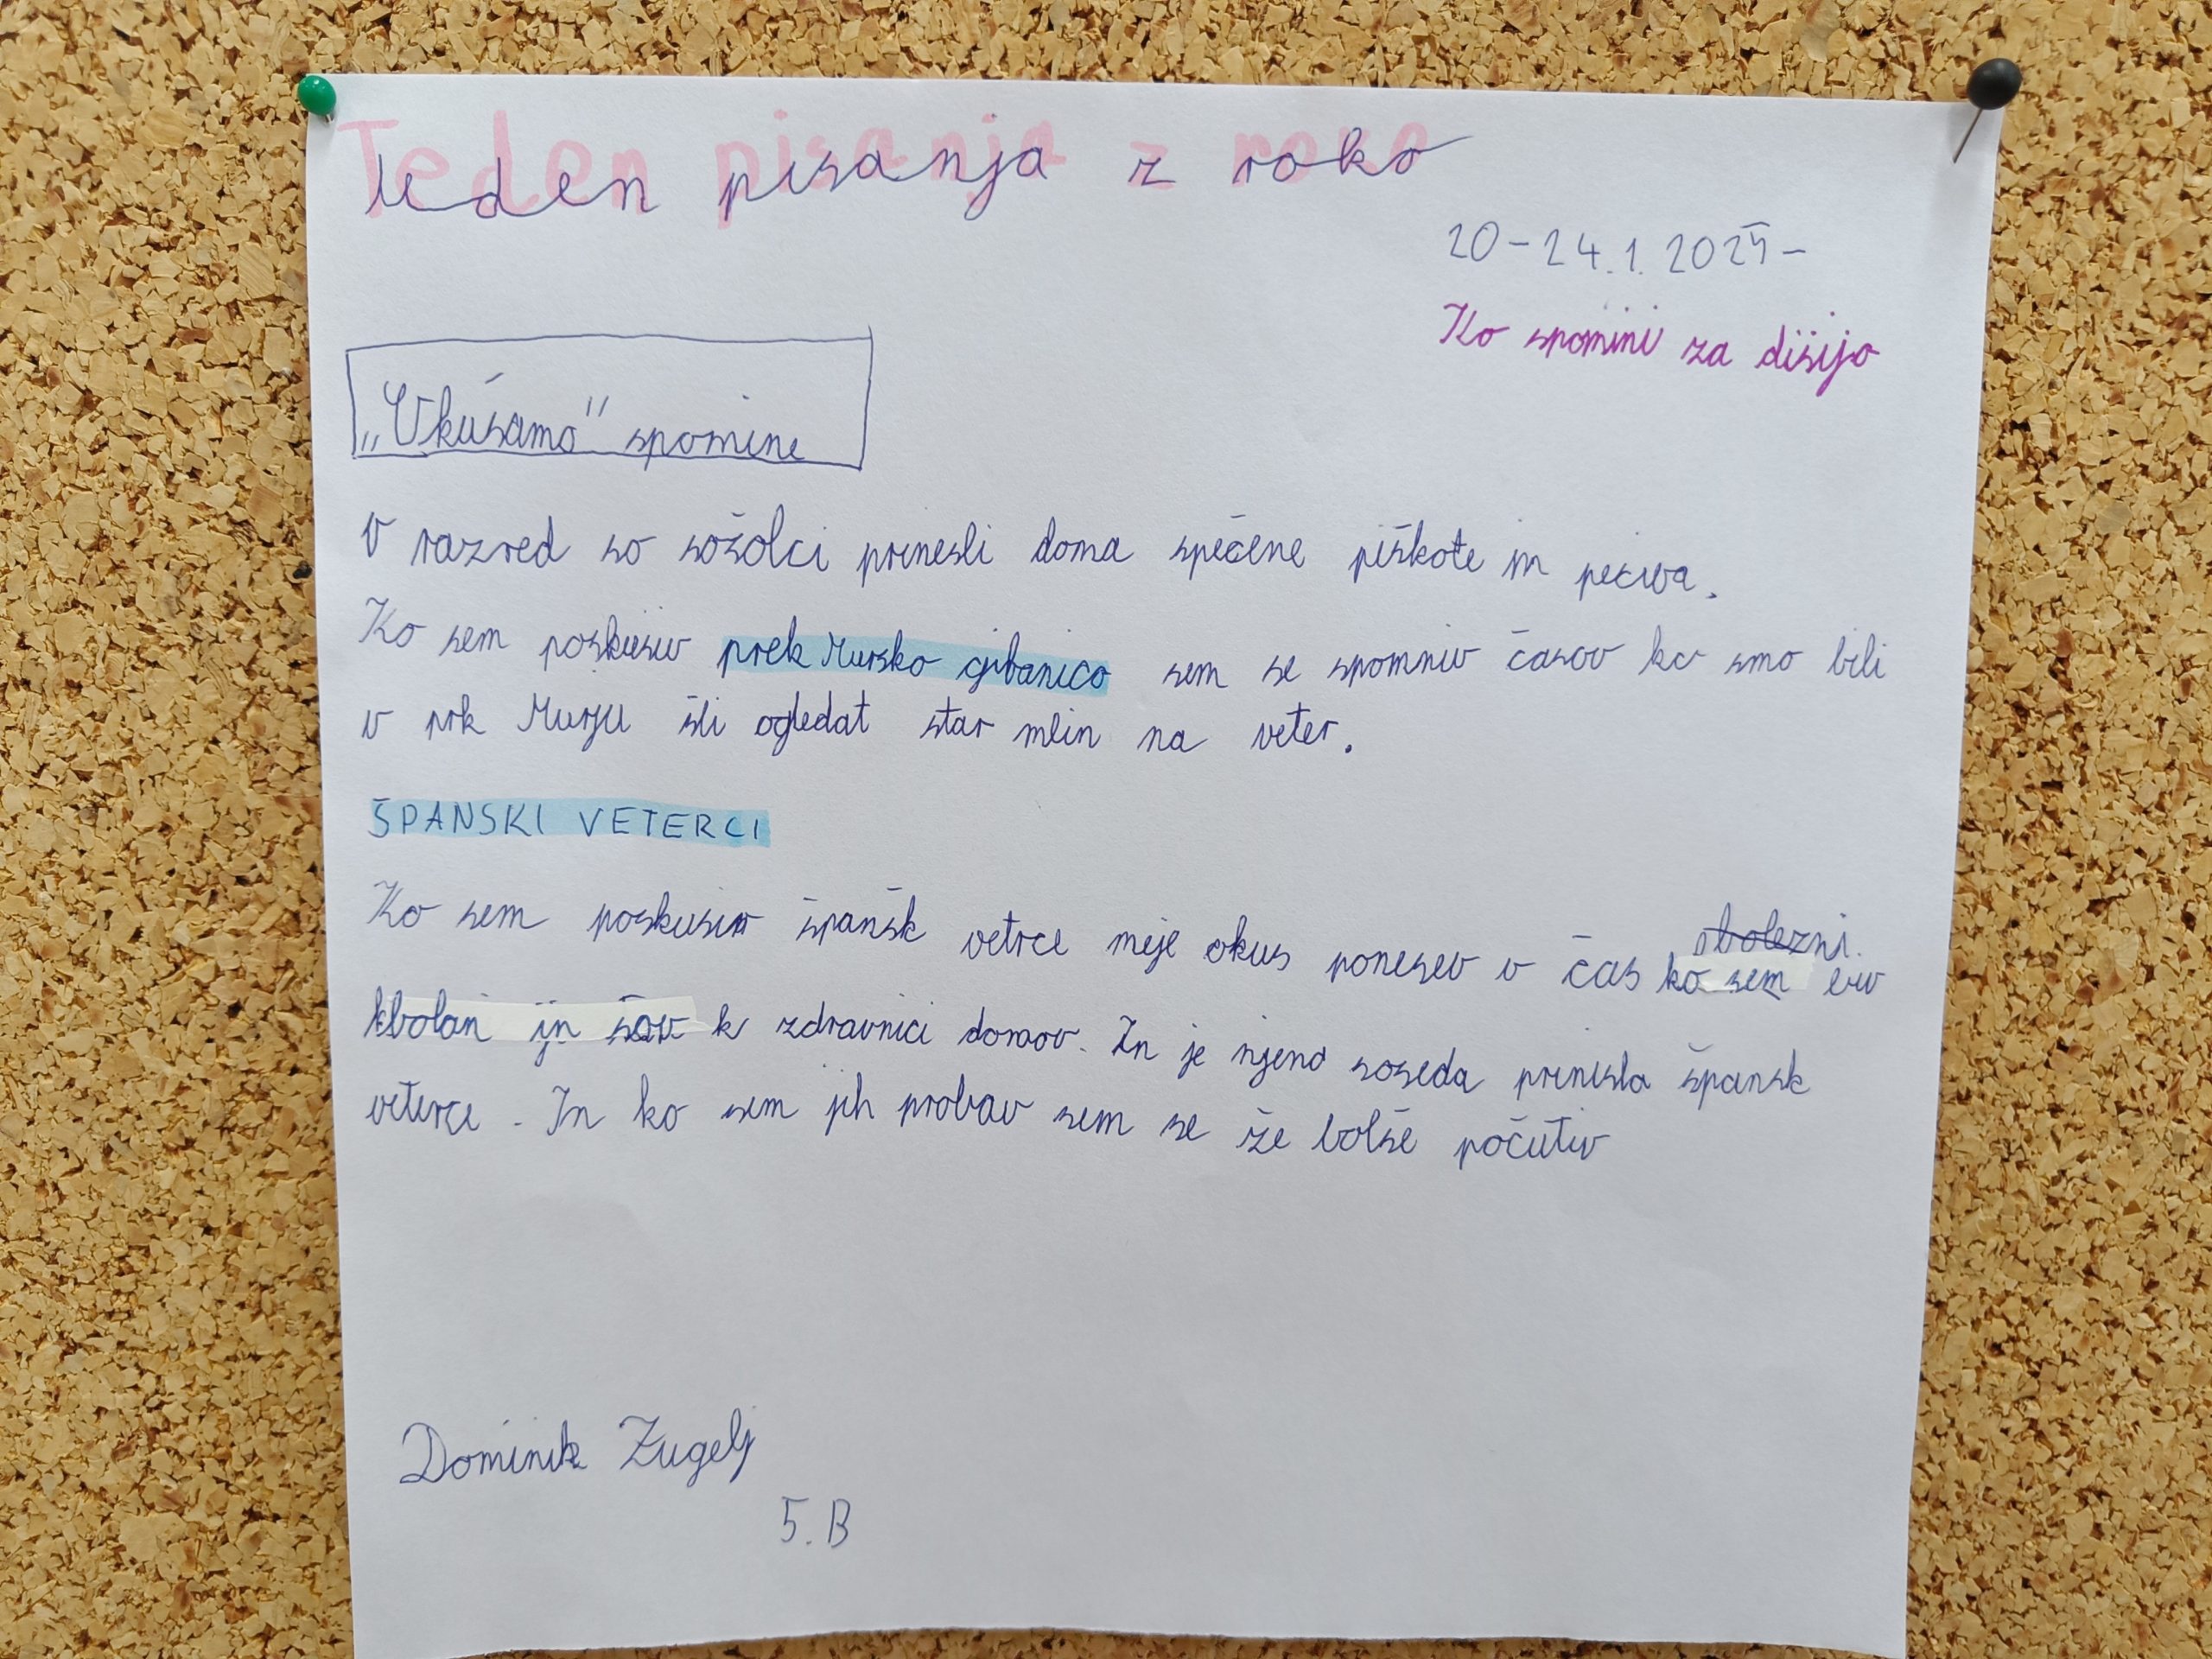 Teden pisanja z roko
20-24.1.2025-
Ko spomini za dišijo
„Vkúsamo" spomine
V razred so sošolci prinesli doma spečene piškote in peciva.
Ko sem poskusiv prek Mursko gibanico sem se spomniv časov ko smo bili
v prk Murju šli ogledat star mlin na veter.
ŠPANSKI VETERCI
Ko sem poskusiv špansk vetrce meje okus ponesev v čas ko sem
bolan in šov k zdravnici domov. In je njeno soseda prinesla špansk
veterce. In ko sem jih probav sem se že bolše počutiv
Dominik Zugelj
5.B